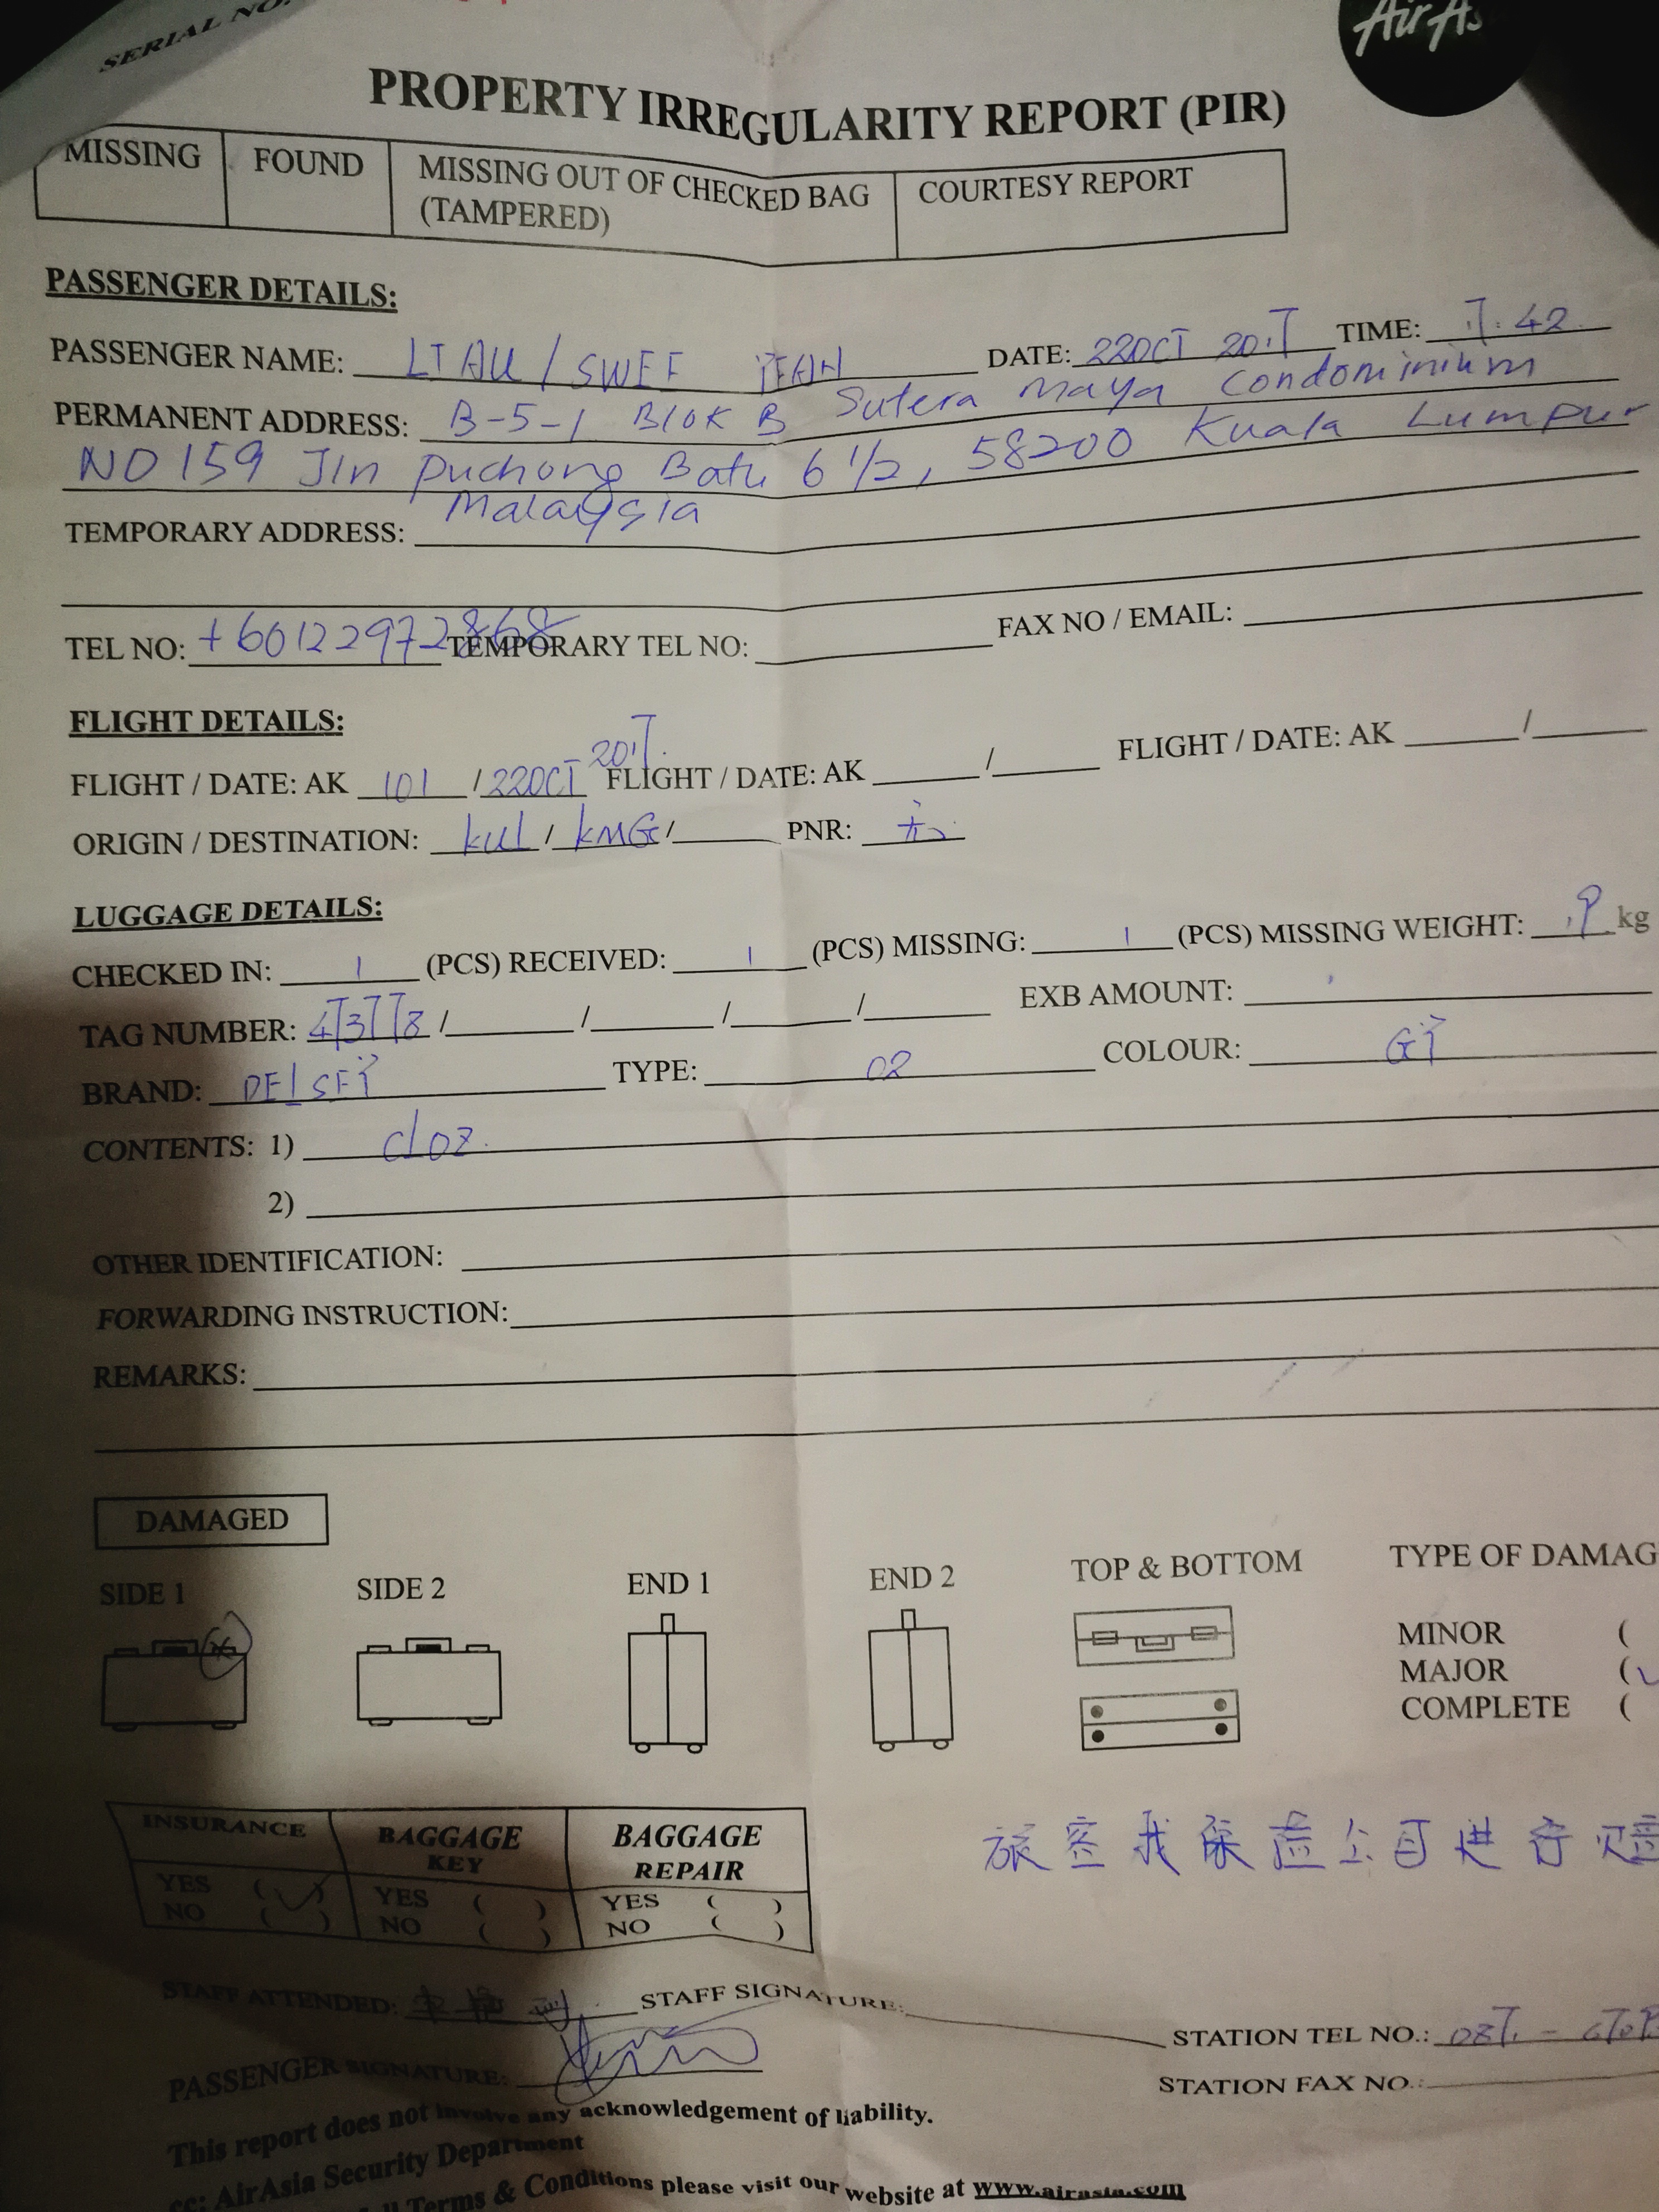 SERIAL NO.
AirAs
PROPERTY IRREGULARITY REPORT (PIR)
MISSING FOUND MISSING OUT OF CHECKED BAG (TAMPERED) COURTESY REPORT
PASSENGER DETAILS:
PASSENGER NAME: LIAU / SWEE DATE: 22OCT 2017 TIME: 17:42
PERMANENT ADDRESS: B-5-1 Blok B Sutera Maya Condominium
NO 159 Jln Puchong Batu 6 1/2, 58200 Kuala Lumpur
Malaysia
TEMPORARY ADDRESS:
TEL NO: +60122972868 TEMPORARY TEL NO: FAX NO / EMAIL:
FLIGHT DETAILS:
FLIGHT / DATE: AK 101 / 22OCT 2017 FLIGHT / DATE: AK / FLIGHT / DATE: AK /
ORIGIN / DESTINATION: kul / kMG / PNR:
LUGGAGE DETAILS:
CHECKED IN: 1 (PCS) RECEIVED: 1 (PCS) MISSING: 1 (PCS) MISSING WEIGHT: kg
TAG NUMBER: 473778 / / / / EXB AMOUNT:
BRAND: DELSEY TYPE: 02 COLOUR: GY
CONTENTS: 1) cloz.
2)
OTHER IDENTIFICATION:
FORWARDING INSTRUCTION:
REMARKS:
DAMAGED
SIDE 1 SIDE 2 END 1 END 2 TOP & BOTTOM TYPE OF DAMAG
MINOR (
MAJOR (
COMPLETE (
INSURANCE BAGGAGE KEY BAGGAGE REPAIR
YES ( ✓ ) YES ( ) YES ( )
NO ( ) NO ( ) NO ( )
旅客我保险公司进行
STAFF ATTENDED: STAFF SIGNATURE:
STATION TEL NO.:
PASSENGER SIGNATURE:
STATION FAX NO.:
This report does not involve any acknowledgement of liability.
cc: AirAsia Security Department
Terms & Conditions please visit our website at www.airasia.com